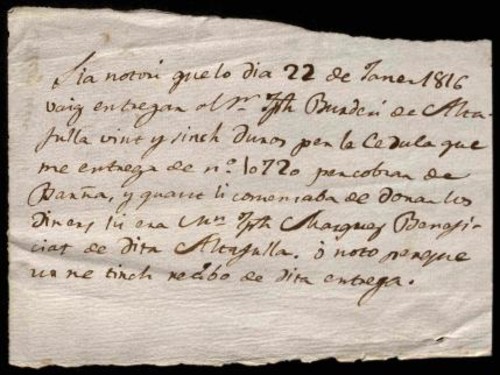 Sia notori que lo dia 22 de Janer 1816
vaig entregar al Sr. Jph Burderi de Alta-
fulla vint y sinch duros per la Cedula que
me entrega de nº. 10720 per cobrar de
Barña, y quant li comensaba de donar los
Diners li era Mn. Jph Marques Benefi-
ciat de dita Altafulla. ó noto perque
un ne tinch recibo de dita entrega.